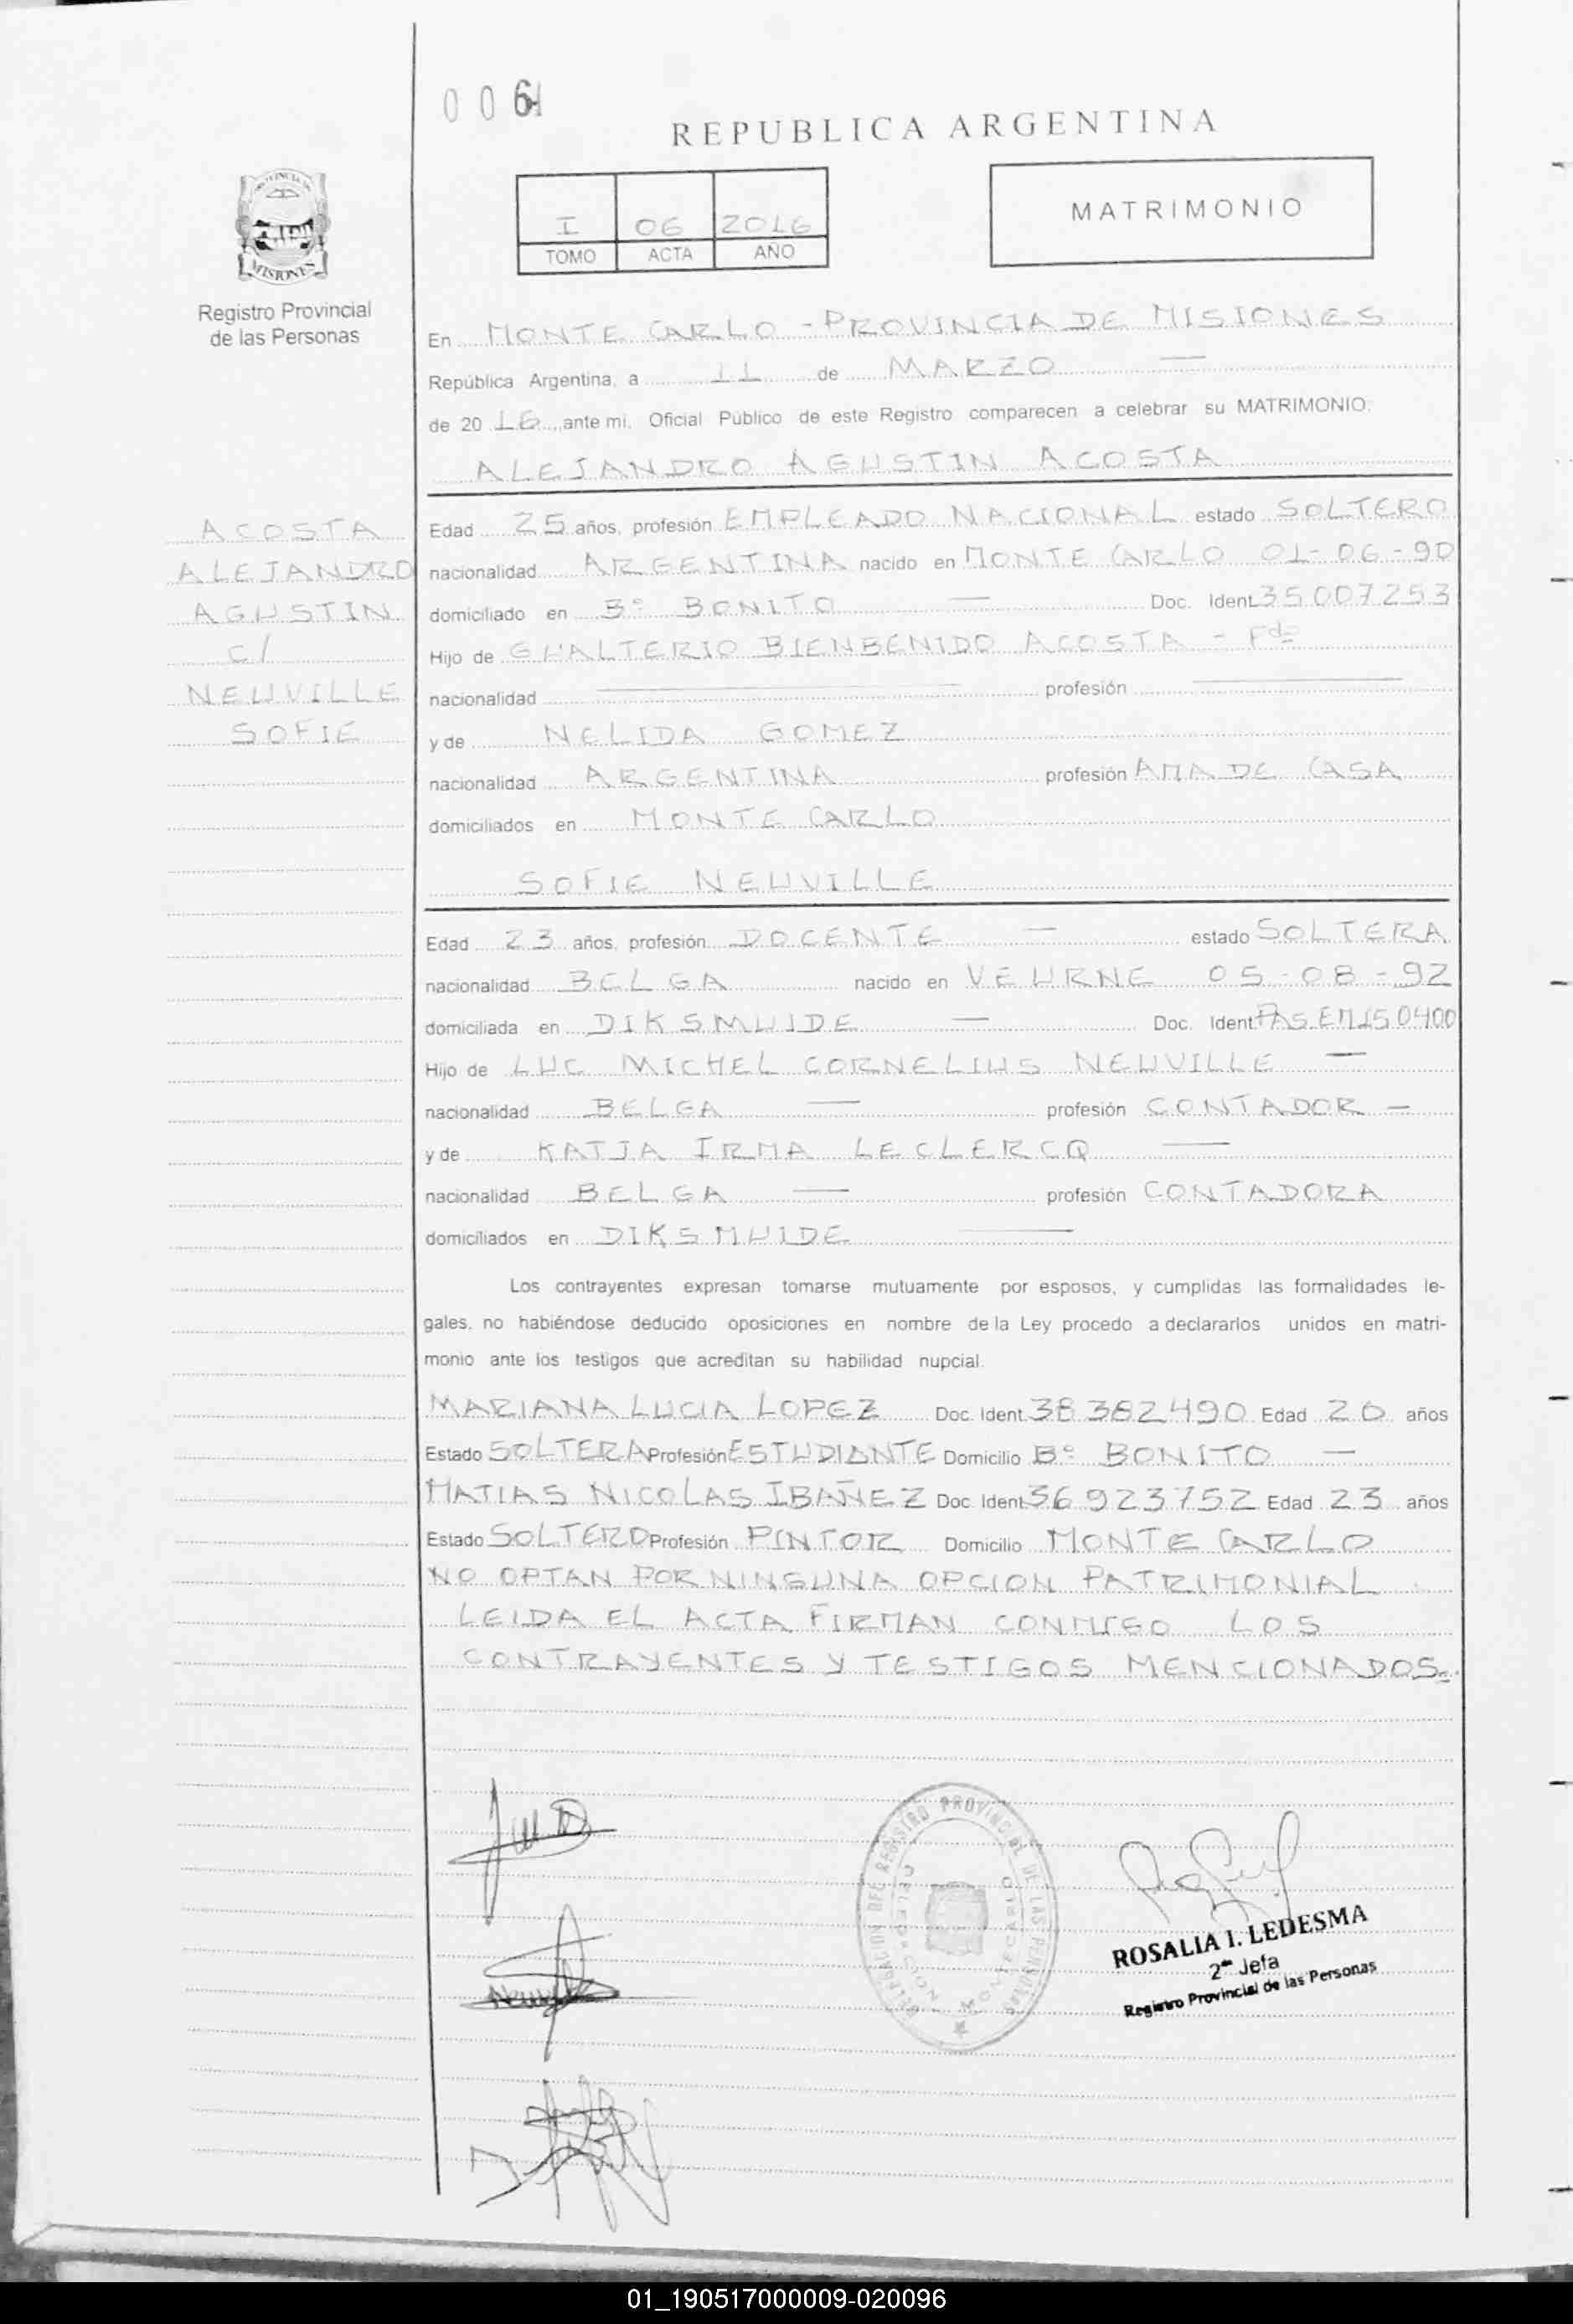 006
REPUBLICA ARGENTINA
I 06 2016
TOMO ACTA AÑO
MATRIMONIO
PROVINCIA DE
MISIONES
Registro Provincial
de las Personas
En MONTE CARLO - PROVINCIA DE MISIONES
República Argentina, a 11 de MARZO —
de 2016, ante mi, Oficial Público de este Registro comparecen a celebrar su MATRIMONIO:
ALEJANDRO AGUSTIN ACOSTA
ACOSTA
ALEJANDRO
AGUSTIN
C/
NEUVILLE
SOFIE
Edad 25 años, profesión EMPLEADO NACIONAL estado SOLTERO
nacionalidad ARGENTINA nacido en MONTE CARLO 01-06-90
domiciliado en Bº BONITO — Doc. Ident. 35007253
Hijo de GUALTERIO BIENBENIDO ACOSTA - Fdo
nacionalidad — profesión —
y de NELIDA GOMEZ
nacionalidad ARGENTINA profesión AMA DE CASA
domiciliados en MONTE CARLO
SOFIE NEUVILLE
Edad 23 años, profesión DOCENTE — estado SOLTERA
nacionalidad BELGA nacido en VEURNE 05-08-92
domiciliada en DIKSMUIDE — Doc. Ident. PAS EM150400
Hijo de LUC MICHEL CORNELIUS NEUVILLE —
nacionalidad BELGA — profesión CONTADOR -
y de KATJA IRMA LECLERCQ —
nacionalidad BELGA — profesión CONTADORA
domiciliados en DIKSMUIDE —
Los contrayentes expresan tomarse mutuamente por esposos, y cumplidas las formalidades le-
gales, no habiéndose deducido oposiciones en nombre de la Ley procedo a declararlos unidos en matri-
monio ante los testigos que acreditan su habilidad nupcial.
MARIANA LUCIA LOPEZ Doc. Ident. 38382490 Edad 20 años
Estado SOLTERA Profesión ESTUDIANTE Domicilio Bº BONITO —
MATIAS NICOLAS IBAÑEZ Doc. Ident. 36923752 Edad 23 años
Estado SOLTERO Profesión PINTOR Domicilio MONTE CARLO
NO OPTAN POR NINGUNA OPCION PATRIMONIAL
LEIDA EL ACTA FIRMAN CONMIGO LOS
CONTRAYENTES Y TESTIGOS MENCIONADOS.
DELEGACION DEL REGISTRO PROVINCIAL DE LAS PERSONAS
MONTECARLO
ROSALIA I. LEDESMA
2da Jefa
Registro Provincial de las Personas
01_190517000009-020096